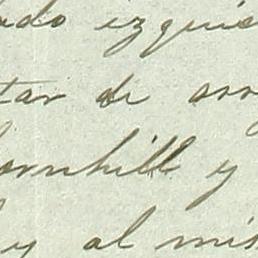 ado izquie
tar de arr
ornhill y
y al mis